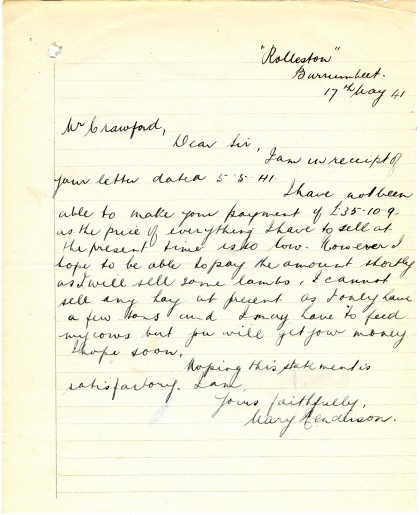 "Rolleston"
Burrumbeet.
17th May 41
Mr Crawford,
Dear Sir,
I am in receipt of
your letter dated 5-5-41.
I have not been
able to make your payment of £35-10-9.
as the price of everything I have to sell at
the present time is so low. However I
hope to be able to pay the amount shortly
as I will sell some lambs, I cannot
sell any hay at present as I only have
a few tons and I may have to feed
my cows but you will get your money
I hope soon.
Hoping this statement is
satisfactory. I am,
Yours faithfully,
Mary Henderson.